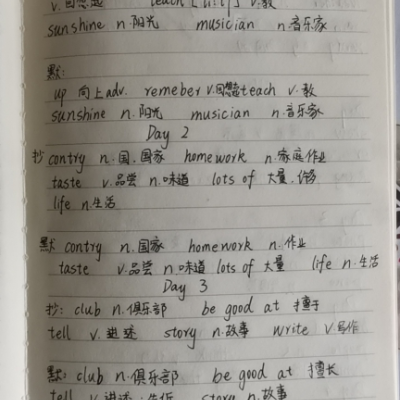 v.回想起 teach [ti:tʃ] v.教
sunshine n.阳光 musician n.音乐家
默:
up 向上adv. remeber v.回想起 teach v.教
sunshine n.阳光 musician n.音乐家
Day 2
抄 contry n.国,国家 homework n.家庭作业
taste v.品尝 n.味道 lots of 大量,许多
life n.生活
默 contry n.国家 homework n.作业
taste v.品尝 n.味道 lots of 大量 life n.生活
Day 3
抄: club n.俱乐部 be good at 擅于
tell v.讲述 story n.故事 write v.写作
默: club n.俱乐部 be good at 擅长
tell v.讲述;告诉 story n.故事